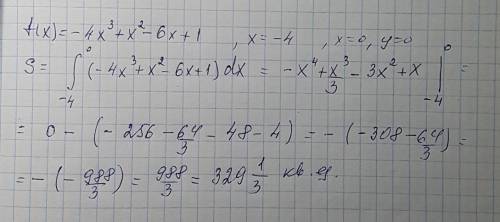 f(x) = -4x³ + x² - 6x + 1 , x = -4 , x = 0, y = 0
S = ∫₋₄⁰ (-4x³ + x² - 6x + 1) dx = -x⁴ + x³/3 - 3x² + x |₋₄⁰ =
= 0 - (-256 - 64/3 - 48 - 4) = -(-308 - 64/3) =
= -(-988/3) = 988/3 = 329 1/3 кв. ед.